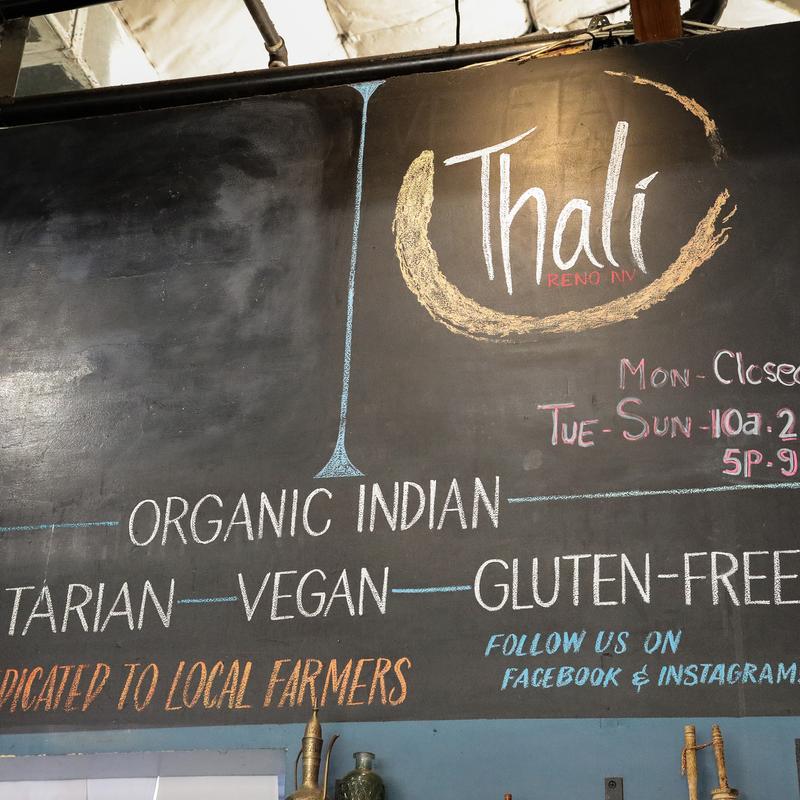 Thali
RENO NV
MON - Closed
TUE - SUN - 10a - 2
5P - 9
ORGANIC INDIAN
TARIAN — VEGAN — GLUTEN-FREE
DICATED TO LOCAL FARMERS
FOLLOW US ON
FACEBOOK & INSTAGRAM!